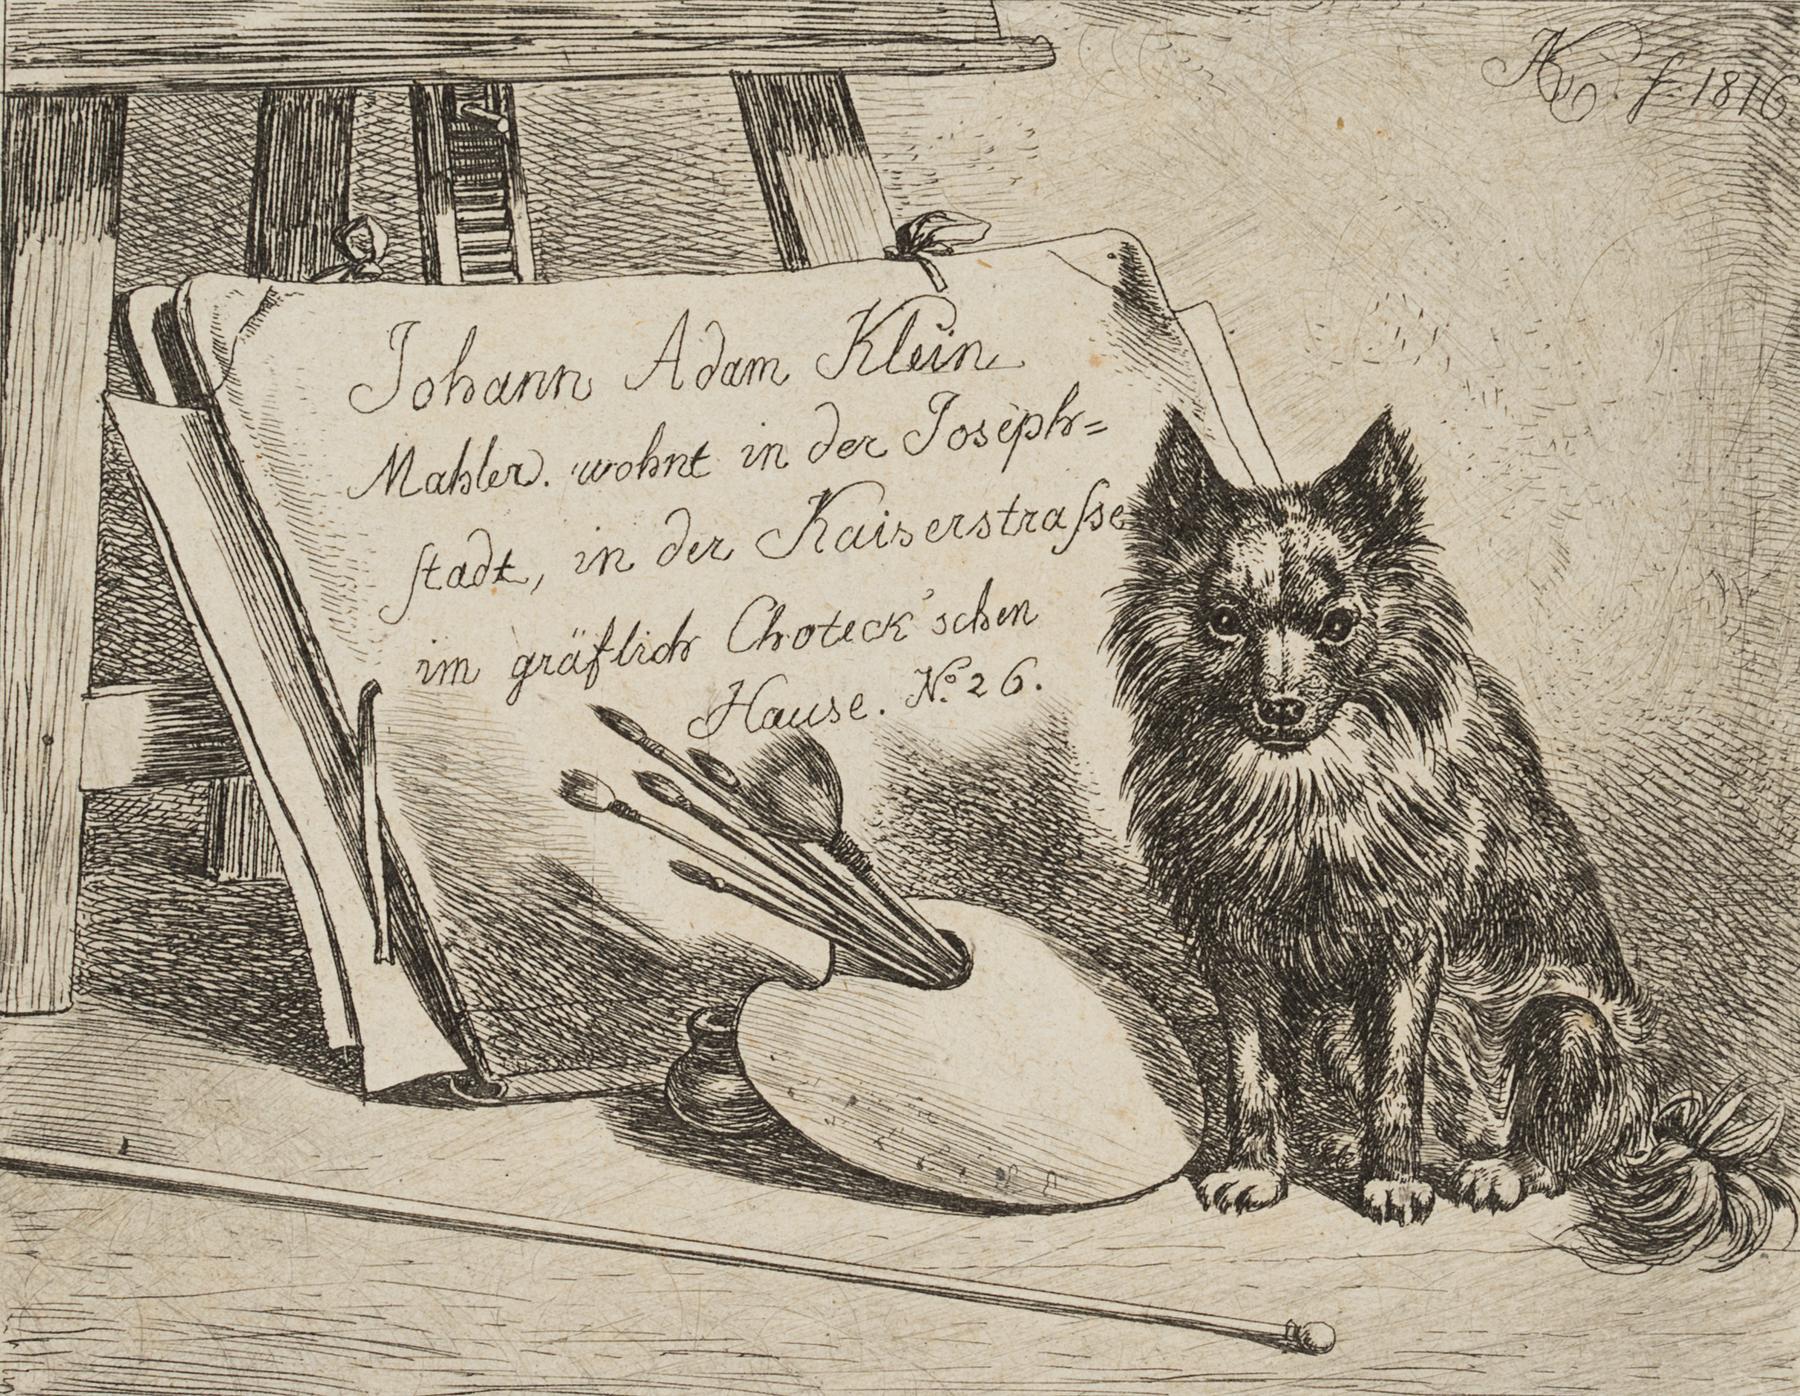 f. 1816
Johann Adam Klein
Mahler. wohnt in der Joseph=
ſtadt, in der Kaiserstraſse
im gräflich Choteck'schen
Hause. No. 26.